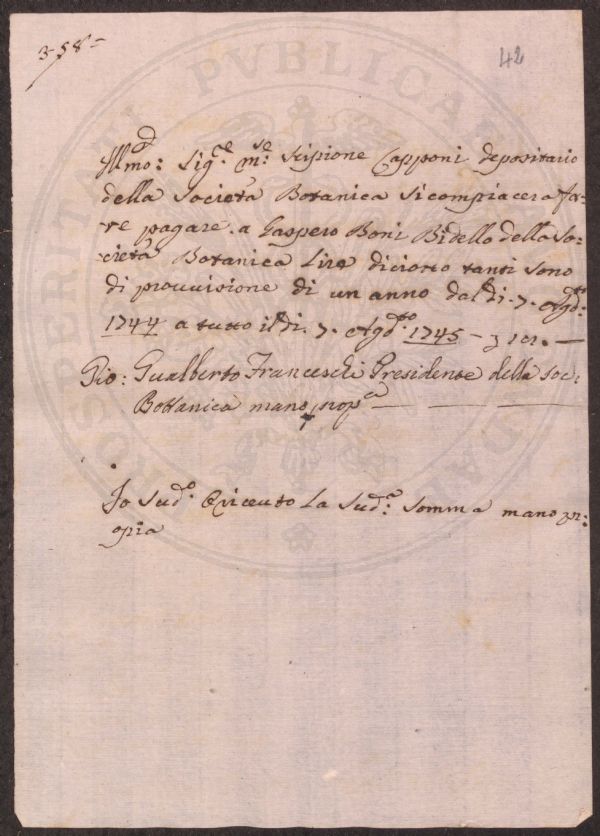 3-58-
42
Illmo: Sigre. mse. Scipione Capponi depositario
della Società Botanica si compiacerà fa-
re pagare. a Gaspero Boni Bidello della So-
cietà Botanica Lire diciotto tanti sono
di provvisione di un anno dal di. 7. Agto:
1744 a tutto il di. 7. Agto. 1745 -
Gio: Gualberto Franceschi Presidente della Soc:
Bottanica mano propa
Io Sudo. Riceuto La Suda. Somma mano pr:
opia
PROSPERITATI PVBLICAE